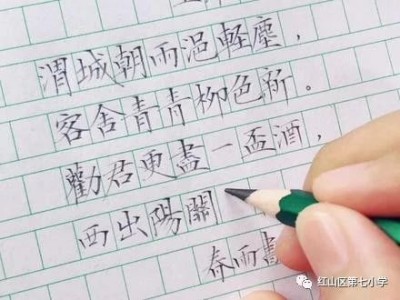 渭城朝雨浥輕塵，
客舍青青柳色所。
勸君更盡一盃酒，
西出陽關
春雨書
红山区第七小学